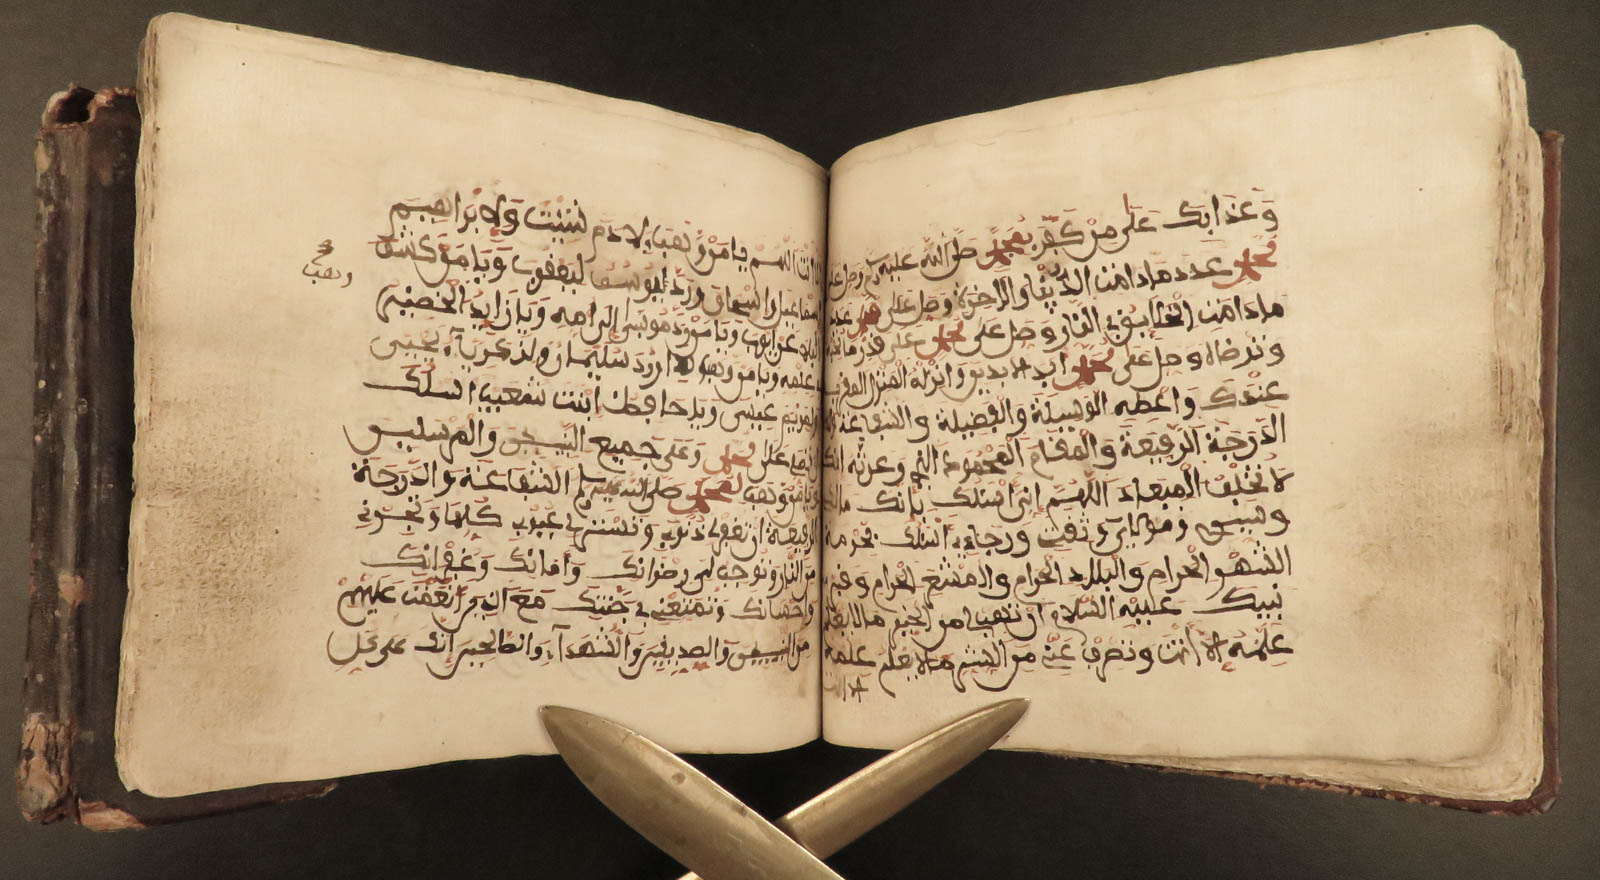 وعذابك على من كفر بمحمد صلى الله عليه وسلم وصل على
محمد عدد ما دامت الدنيا والاخرة وصل على محمد عدد
ما دامت الخلايق في النار وصل على محمد على قدر ما تحبه
وترضاه وصل على محمد ابد الابدين وانزله المنزل المقرب
عندك واعطه الوسيلة والفضيلة والشفاعة و
الدرجة الرفيعة والمقام المحمود الذي وعدته انك
لا تخلف الميعاد اللهم اني اسئلك بانك مالكي
وسيدي ومولاي وثقتي ورجاءي اسئلك بحرمة
الشهر الحرام والبلد الحرام والمشعر الحرام وقبر
نبيك عليه السلام ان تهب لي من الخير ما لا يعلم
علمه الا انت وتصرف عني من الشر ما لا يعلم علمه
الا انت
الا انت اللهم يا من وهب لادم شيث ولابراهيم
اسماعيل واسحاق ورد يوسف ليعقوب ويا من كشف
البلاء عن ايوب ويا من رد موسى الى امه ويا زايد الخضر في
علمه ويا من وهب لداوود سليمان ولزكرياء يحيى
ولمريم عيسى ويا حافظ ابنت شعيب اسلك
ان تصلي على محمد وعلى جميع النبيين والمرسلين
ويا من وهب لمحمد صلى الله عليه وسلم الشفاعة والدرجة
الرفيعة ان تغفر لي ذنوبي وتستر لي عيوبي كلها وتجيرني
من النار وتوجب لي رضوانك وامانك وغفرانك
واحسانك وتمتعني في جنتك مع الذين انعمت عليهم
من النبيين والصديقين والشهداء والصالحين انك على كل
وهب